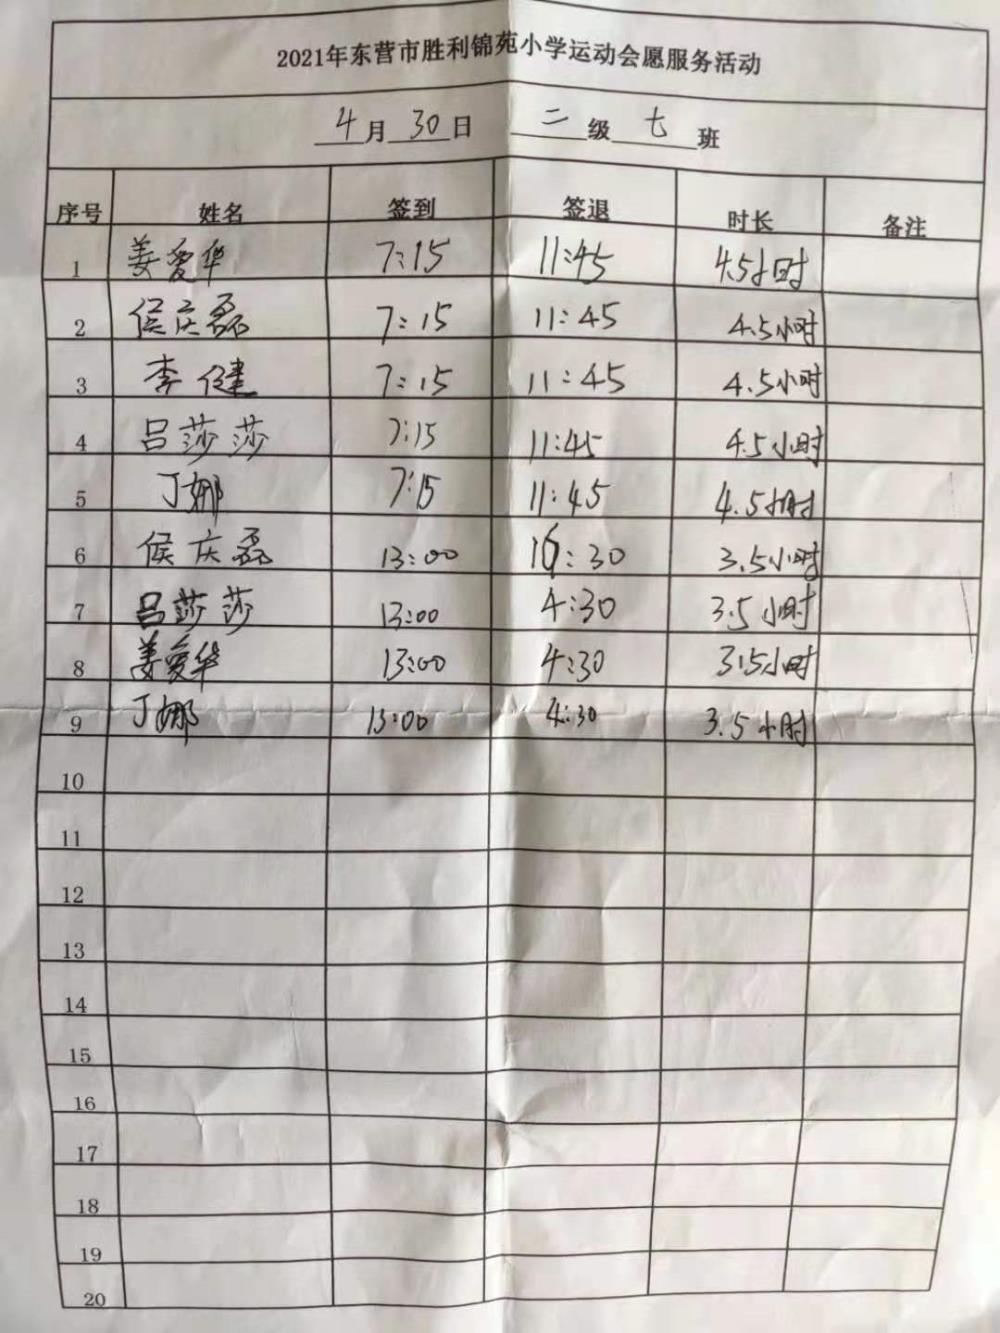 2021年东营市胜利锦苑小学运动会愿服务活动
4月30日 二级七班
序号 姓名 签到 签退 时长 备注
1 姜爱华 7:15 11:45 4.5小时
2 侯庆磊 7:15 11:45 4.5小时
3 李健 7:15 11:45 4.5小时
4 吕莎莎 7:15 11:45 4.5小时
5 丁娜 7:15 11:45 4.5小时
6 侯庆磊 13:00 16:30 3.5小时
7 吕莎莎 13:00 4:30 3.5小时
8 姜爱华 13:00 4:30 3.5小时
9 丁娜 13:00 4:30 3.5小时
10
11
12
13
14
15
16
17
18
19
20